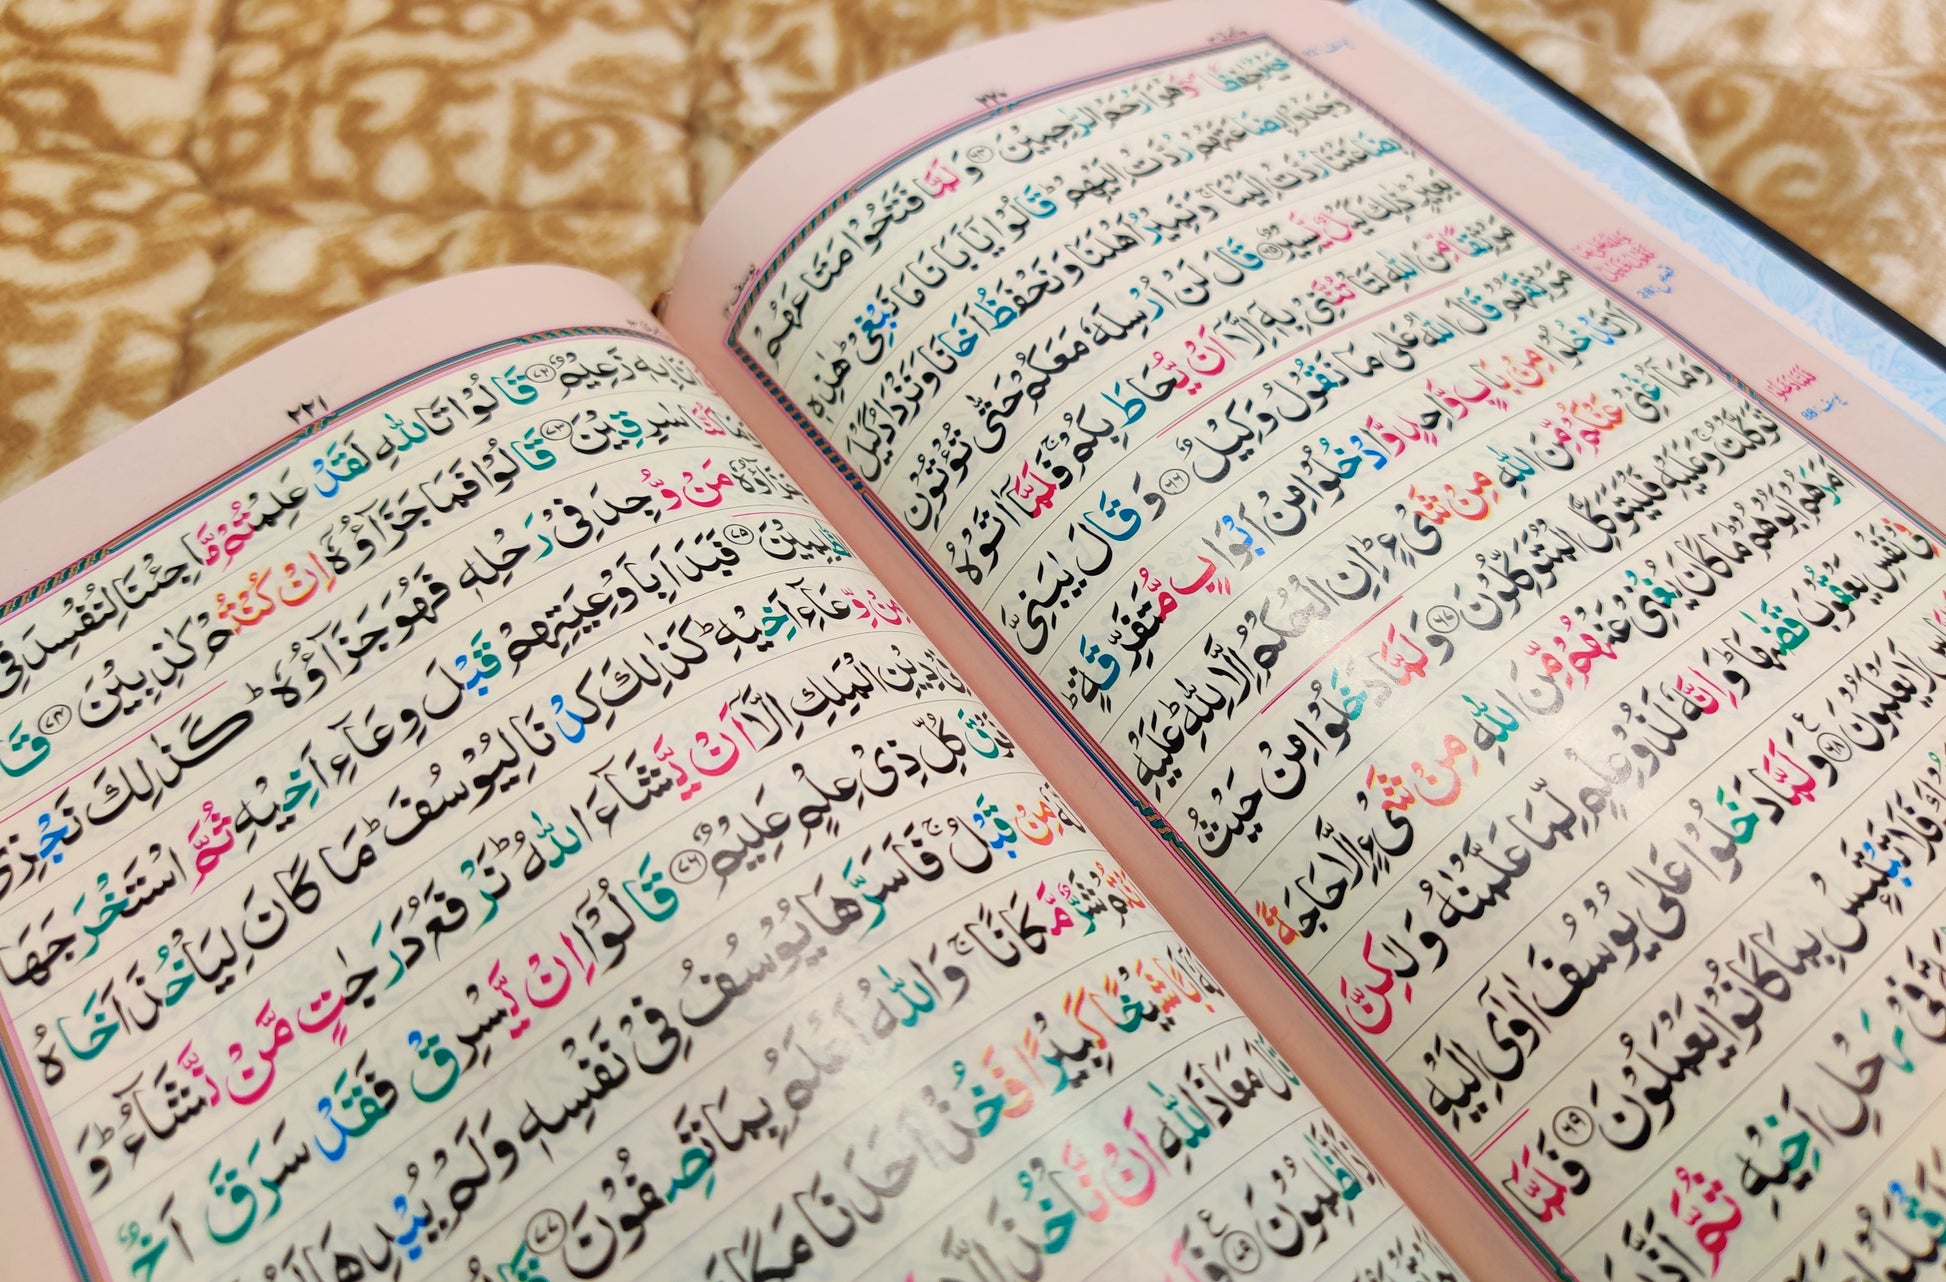 ٢٢٠
خَيْرٌ حٰفِظًا وَّهُوَ اَرْحَمُ الرّٰحِمِيْنَ ﴿٦٤﴾ وَلَمَّا فَتَحُوْا مَتَاعَهُمْ
وَجَدُوْا بِضَاعَتَهُمْ رُدَّتْ اِلَيْهِمْ ؕ قَالُوْا يٰۤاَبَانَا مَا نَبْغِيْ ؕ هٰذِهٖ
بِضَاعَتُنَا رُدَّتْ اِلَيْنَا ۚ وَنَمِيْرُ اَهْلَنَا وَنَحْفَظُ اَخَانَا وَنَزْدَادُ كَيْلَ
بَعِيْرٍ ؕ ذٰلِكَ كَيْلٌ يَّسِيْرٌ ﴿٦٥﴾ قَالَ لَنْ اُرْسِلَهٗ مَعَكُمْ حَتّٰى تُؤْتُوْنِ
مَوْثِقًا مِّنَ اللّٰهِ لَتَاْتُنَّنِيْ بِهٖۤ اِلَّاۤ اَنْ يُّحَاطَ بِكُمْ ۚ فَلَمَّاۤ اٰتَوْهُ
مَوْثِقَهُمْ قَالَ اللّٰهُ عَلٰى مَا نَقُوْلُ وَكِيْلٌ ﴿٦٦﴾ وَقَالَ يٰبَنِيَّ
لَا تَدْخُلُوْا مِنْۢ بَابٍ وَّاحِدٍ وَّادْخُلُوْا مِنْ اَبْوَابٍ مُّتَفَرِّقَةٍ ؕ
وَمَاۤ اُغْنِيْ عَنْكُمْ مِّنَ اللّٰهِ مِنْ شَيْءٍ ؕ اِنِ الْحُكْمُ اِلَّا لِلّٰهِ ؕ عَلَيْهِ
تَوَكَّلْتُ ۚ وَعَلَيْهِ فَلْيَتَوَكَّلِ الْمُتَوَكِّلُوْنَ ﴿٦٧﴾ وَلَمَّا دَخَلُوْا مِنْ حَيْثُ
اَمَرَهُمْ اَبُوْهُمْ ؕ مَا كَانَ يُغْنِيْ عَنْهُمْ مِّنَ اللّٰهِ مِنْ شَيْءٍ اِلَّا حَاجَةً
فِيْ نَفْسِ يَعْقُوْبَ قَضٰىهَا ؕ وَاِنَّهٗ لَذُوْ عِلْمٍ لِّمَا عَلَّمْنٰهُ وَلٰكِنَّ
لَا يَعْلَمُوْنَ ﴿٦٨﴾ وَلَمَّا دَخَلُوْا عَلٰى يُوْسُفَ اٰوٰۤى اِلَيْهِ
فَلَا تَبْتَئِسْ بِمَا كَانُوْا يَعْمَلُوْنَ ﴿٦٩﴾ فَلَمَّا
فِيْ رَحْلِ اَخِيْهِ ثُمَّ اَذَّنَ
٢٢١
بِهٖ زَعِيْمٌ ﴿٧٢﴾ قَالُوْا تَاللّٰهِ لَقَدْ عَلِمْتُمْ مَّا جِئْنَا لِنُفْسِدَ فِي
كُنَّا سٰرِقِيْنَ ﴿٧٣﴾ قَالُوْا فَمَا جَزَآؤُهٗۤ اِنْ كُنْتُمْ كٰذِبِيْنَ ﴿٧٤﴾ قَا
جَزَآؤُهٗ مَنْ وُّجِدَ فِيْ رَحْلِهٖ فَهُوَ جَزَآؤُهٗ ؕ كَذٰلِكَ نَجْزِي
الظّٰلِمِيْنَ ﴿٧٥﴾ فَبَدَاَ بِاَوْعِيَتِهِمْ قَبْلَ وِعَآءِ اَخِيْهِ ثُمَّ اسْتَخْرَجَهَا
مِنْ وِّعَآءِ اَخِيْهِ ؕ كَذٰلِكَ كِدْنَا لِيُوْسُفَ ؕ مَا كَانَ لِيَاْخُذَ اَخَاهُ
فِيْ دِيْنِ الْمَلِكِ اِلَّاۤ اَنْ يَّشَآءَ اللّٰهُ ؕ نَرْفَعُ دَرَجٰتٍ مَّنْ نَّشَآءُ ؕ وَ
فَوْقَ كُلِّ ذِيْ عِلْمٍ عَلِيْمٌ ﴿٧٦﴾ قَالُوْۤا اِنْ يَّسْرِقْ فَقَدْ سَرَقَ اَخٌ
لَّهٗ مِنْ قَبْلُ ۚ فَاَسَرَّهَا يُوْسُفُ فِيْ نَفْسِهٖ وَلَمْ يُبْدِهَا
اَنْتُمْ شَرٌّ مَّكَانًا ۚ وَاللّٰهُ اَعْلَمُ بِمَا تَصِفُوْنَ ﴿٧٧﴾
اَبًا شَيْخًا كَبِيْرًا فَخُذْ اَحَدَنَا مَكَا
قَالَ مَعَاذَ اللّٰهِ اَنْ نَّاْخُذَ اِلَّا
لَّظٰلِمُوْنَ ﴿٧٩﴾